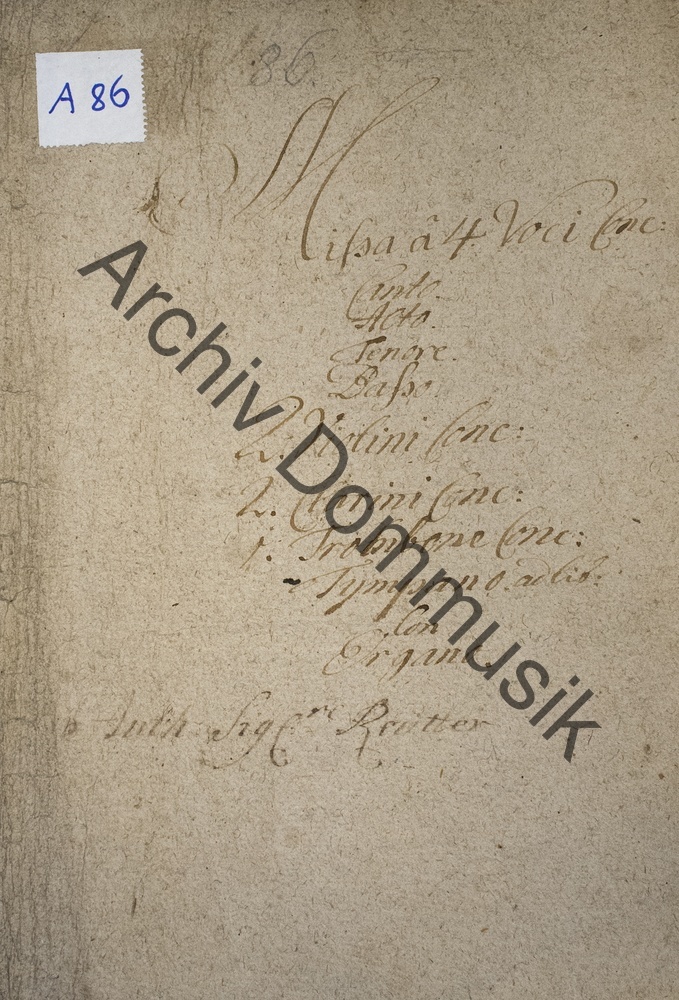 86.
A 86
Missa â 4. Voci Conc:
Canto.
Alto.
Tenore.
Basso.
2. Violini Conc:
2. Clarini Conc:
1. Trombone Conc:
Tympano. ad lib:
Con
Organo.
Sig:re Reutter
Archiv Dommusik